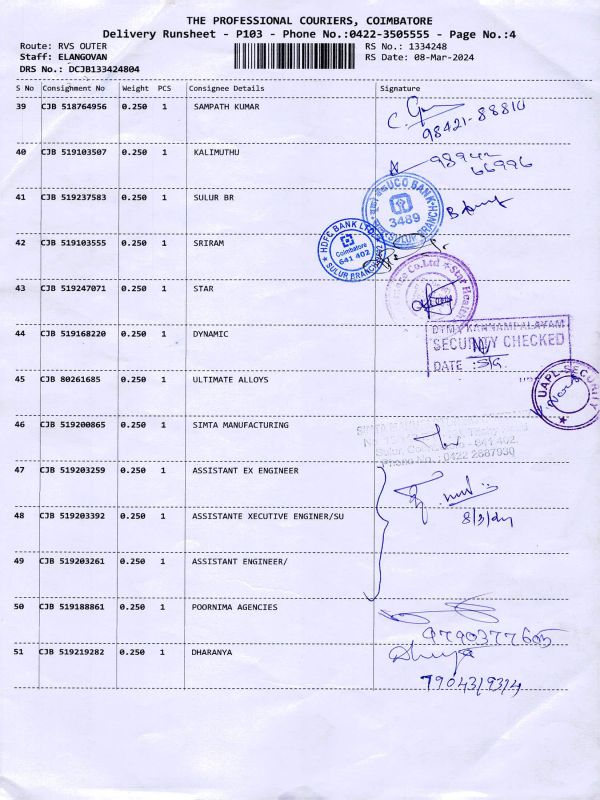 THE PROFESSIONAL COURIERS, COIMBATORE
Delivery Runsheet - P103 - Phone No.:0422-3505555 - Page No.:4
Route: RVS OUTER RS No.: 1334248
Staff: ELANGOVAN RS Date: 08-Mar-2024
DRS No.: DCJB133424804
S No Consignment No Weight PCS Consignee Details Signature
39 CJB 518764956 0.250 1 SAMPATH KUMAR
98421-88810
40 CJB 519103507 0.250 1 KALIMUTHU
66996
41 CJB 519237583 0.250 1 SULUR BR
UCO BANK
3489
SULUR BRANCH
42 CJB 519103555 0.250 1 SRIRAM
HDFC BANK LTD
Coimbatore
641 402
SULUR BRANCH
43 CJB 519247071 0.250 1 STAR
Co.Ltd * Star Health
44 CJB 519168220 0.250 1 DYNAMIC
KANNAMPALAYAM
SECURITY CHECKED
DATE :
45 CJB 80261685 0.250 1 ULTIMATE ALLOYS
UAPL-SECURITY
46 CJB 519200865 0.250 1 SIMTA MANUFACTURING
SIMTA
Sulur, 641 402.
Phone No : 0422 2687930
47 CJB 519203259 0.250 1 ASSISTANT EX ENGINEER
48 CJB 519203392 0.250 1 ASSISTANTE XECUTIVE ENGINER/SU
8/3/24
49 CJB 519203261 0.250 1 ASSISTANT ENGINEER/
50 CJB 519188861 0.250 1 POORNIMA AGENCIES
51 CJB 519219282 0.250 1 DHARANYA